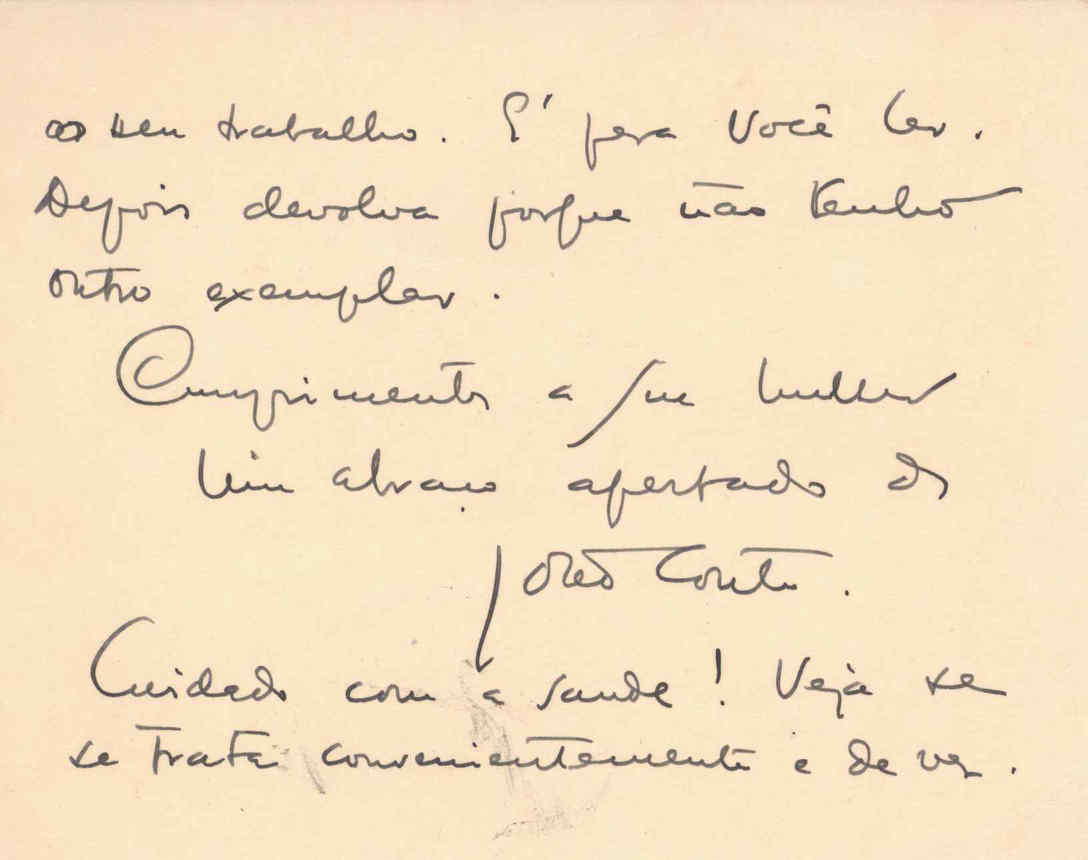 ao seu trabalho. É para Você ler.
Depois devolva porque não tenho
outro exemplar.
Cumprimentos a sua mulher
Um abraço apertado do
João Conte.
Cuidado com a saude! Veja se
se trata convenientemente e de vez.